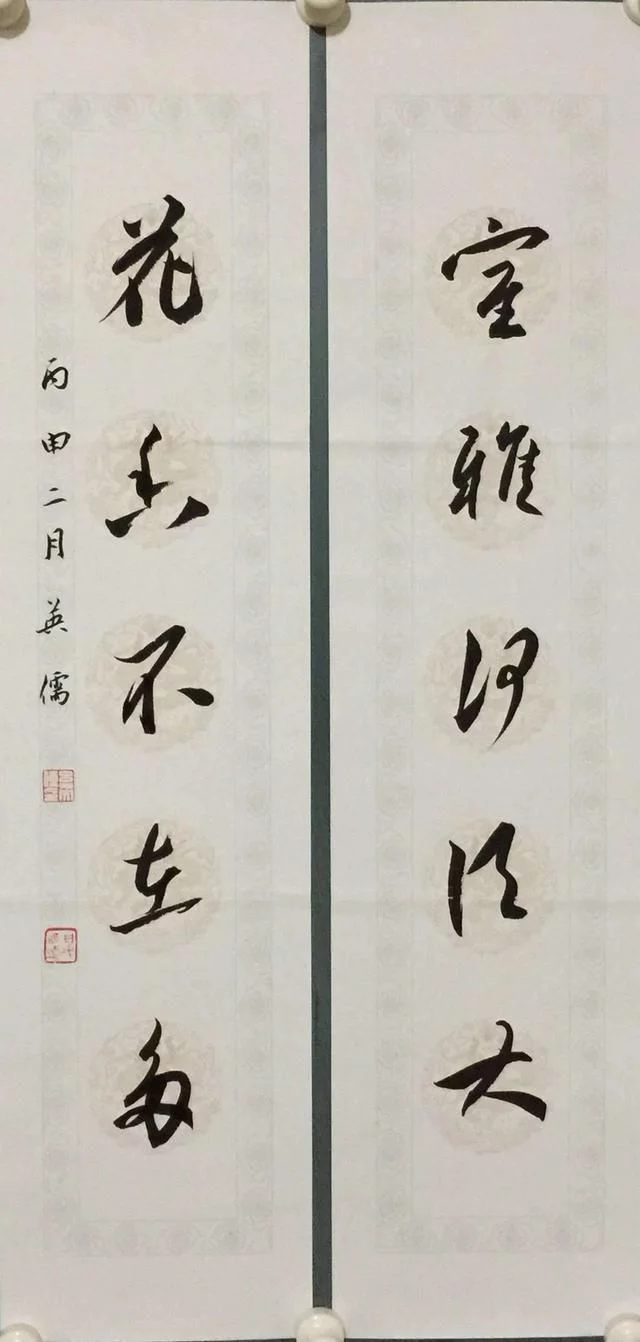 室雅何须大
花香不在多
丙申二月英儒